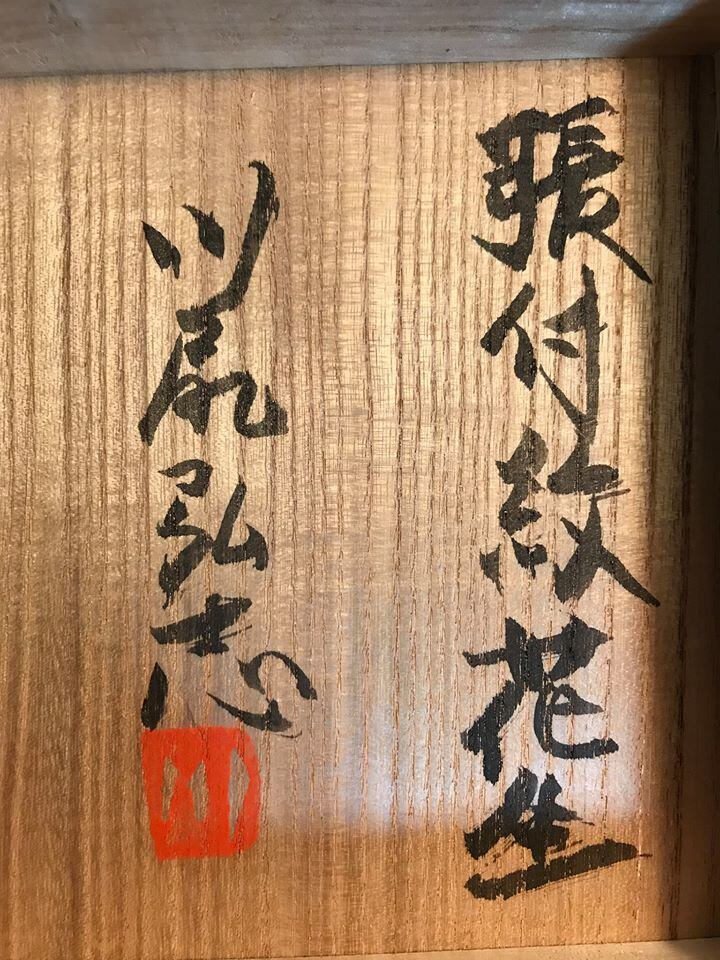 張付紋花生
川尻弘志
川